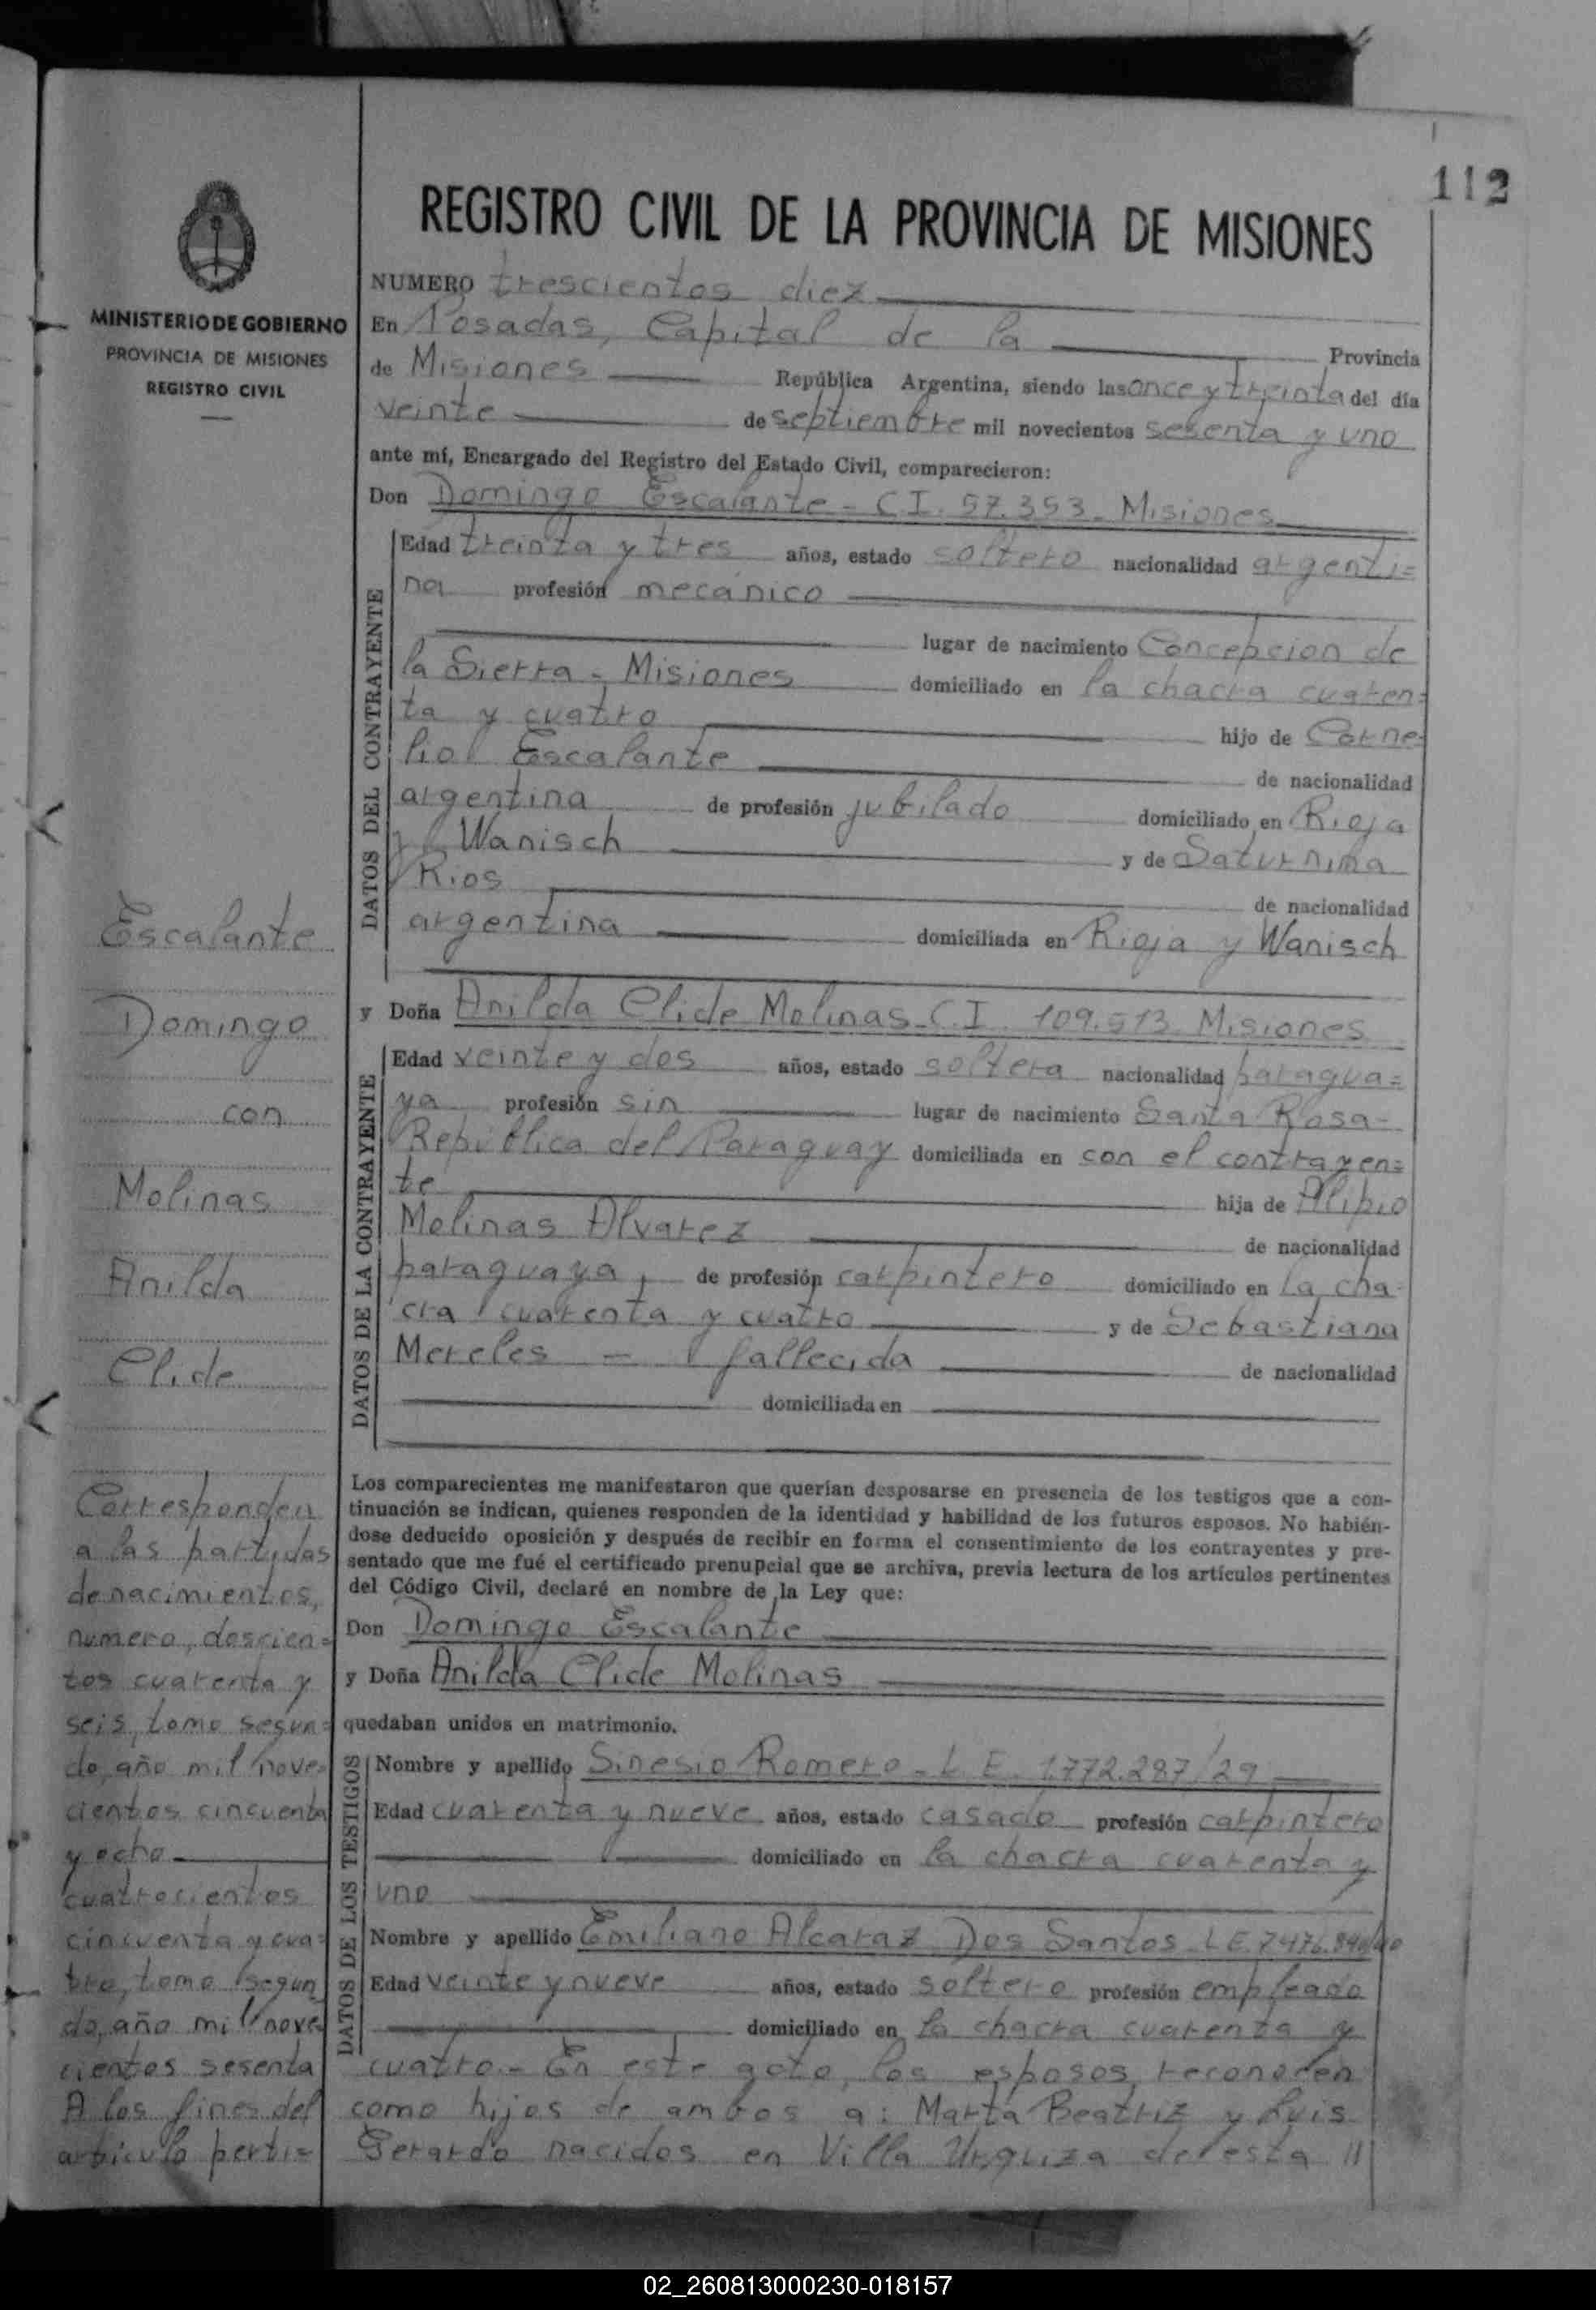 112
REGISTRO CIVIL DE LA PROVINCIA DE MISIONES
MINISTERIO DE GOBIERNO
PROVINCIA DE MISIONES
REGISTRO CIVIL
NUMERO trescientos diez
En Posadas, Capital de la Provincia
de Misiones República Argentina, siendo las once y treinta del día
veinte de septiembre mil novecientos sesenta y uno
ante mí, Encargado del Registro del Estado Civil, comparecieron:
Don Domingo Escalante - C.I. 57.353 - Misiones
DATOS DEL CONTRAYENTE
Edad treinta y tres años, estado soltero nacionalidad argenti=
na profesión mecánico
lugar de nacimiento Concepcion de
la Sierra - Misiones domiciliado en la chacra cuaren=
ta y cuatro hijo de Corne=
lio Escalante de nacionalidad
argentina de profesión jubilado domiciliado en Rioja
y Wanisch y de Saturnina
Rios de nacionalidad
argentina domiciliada en Rioja y Wanisch
y Doña Anilda Clide Molinas - C.I. 109.513 Misiones
DATOS DE LA CONTRAYENTE
Edad veinte y dos años, estado soltera nacionalidad paragua=
ya profesión sin lugar de nacimiento Santa Rosa -
República del Paraguay domiciliada en con el contrayen=
te hija de Alipio
Molinas Alvarez de nacionalidad
paraguaya, de profesión carpintero domiciliado en la cha=
cra cuarenta y cuatro y de Sebastiana
Mereles - fallecida de nacionalidad
domiciliada en
Los comparecientes me manifestaron que querían desposarse en presencia de los testigos que a con-
tinuación se indican, quienes responden de la identidad y habilidad de los futuros esposos. No habién-
dose deducido oposición y después de recibir en forma el consentimiento de los contrayentes y pre-
sentado que me fué el certificado prenupcial que se archiva, previa lectura de los artículos pertinentes
del Código Civil, declaré en nombre de la Ley que:
Don Domingo Escalante
y Doña Anilda Clide Molinas
quedaban unidos en matrimonio.
DATOS DE LOS TESTIGOS
Nombre y apellido Sinesio Romero - L.E. 1.772.287/29
Edad cuarenta y nueve años, estado casado profesión carpintero
domiciliado en la chacra cuarenta y
uno
Nombre y apellido Emiliano Alcaraz Dos Santos L.E.
Edad veinte y nueve años, estado soltero profesión empleado
domiciliado en la chacra cuarenta y
cuatro.- En este acto, los esposos reconocen
como hijos de ambos a: Marta Beatriz y Luis
Gerardo nacidos en Villa Urquiza de esta //
Escalante
Domingo
con
Molinas
Anilda
Clide
Corresponden
a las partidas
de nacimientos,
numero, doscien=
tos cuarenta y
seis, tomo segun=
do, año mil nove=
cientos cincuenta
y ocho
cuatrocientos
cincuenta y cua=
tro, tomo segun
do, año mil nove=
cientos sesenta
A los fines del
articulo perti=
02_260813000230-018157